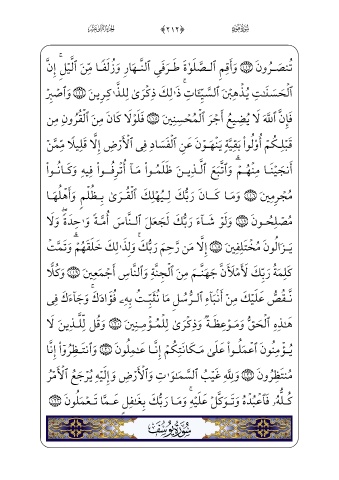 سُورَةُ هُودٍ ﴿٢١٢﴾ الجُزْءُ الثَّانِي عَشَرَ
تُنصَرُونَ ١١٣ وَأَقِمِ ٱلصَّلَوٰةَ طَرَفَىِ ٱلنَّهَارِ وَزُلَفًا مِّنَ ٱلَّيْلِ ۚ إِنَّ
ٱلْحَسَنَٰتِ يُذْهِبْنَ ٱلسَّيِّـَٔاتِ ۚ ذَٰلِكَ ذِكْرَىٰ لِلذَّٰكِرِينَ ١١٤ وَٱصْبِرْ
فَإِنَّ ٱللَّهَ لَا يُضِيعُ أَجْرَ ٱلْمُحْسِنِينَ ١١٥ فَلَوْلَا كَانَ مِنَ ٱلْقُرُونِ مِن
قَبْلِكُمْ أُو۟لُوا۟ بَقِيَّةٍ يَنْهَوْنَ عَنِ ٱلْفَسَادِ فِى ٱلْأَرْضِ إِلَّا قَلِيلًا مِّمَّنْ
أَنجَيْنَا مِنْهُمْ ۗ وَٱتَّبَعَ ٱلَّذِينَ ظَلَمُوا۟ مَآ أُتْرِفُوا۟ فِيهِ وَكَانُوا۟
مُجْرِمِينَ ١١٦ وَمَا كَانَ رَبُّكَ لِيُهْلِكَ ٱلْقُرَىٰ بِظُلْمٍ وَأَهْلُهَا
مُصْلِحُونَ ١١٧ وَلَوْ شَآءَ رَبُّكَ لَجَعَلَ ٱلنَّاسَ أُمَّةً وَٰحِدَةً ۖ وَلَا
يَزَالُونَ مُخْتَلِفِينَ ١١٨ إِلَّا مَن رَّحِمَ رَبُّكَ ۚ وَلِذَٰلِكَ خَلَقَهُمْ ۗ وَتَمَّتْ
كَلِمَةُ رَبِّكَ لَأَمْلَأَنَّ جَهَنَّمَ مِنَ ٱلْجِنَّةِ وَٱلنَّاسِ أَجْمَعِينَ ١١٩ وَكُلًّا
نَّقُصُّ عَلَيْكَ مِنْ أَنۢبَآءِ ٱلرُّسُلِ مَا نُثَبِّتُ بِهِۦ فُؤَادَكَ ۚ وَجَآءَكَ فِى
هَٰذِهِ ٱلْحَقُّ وَمَوْعِظَةٌ وَذِكْرَىٰ لِلْمُؤْمِنِينَ ١٢٠ وَقُل لِّلَّذِينَ لَا
يُؤْمِنُونَ ٱعْمَلُوا۟ عَلَىٰ مَكَانَتِكُمْ إِنَّا عَٰمِلُونَ ١٢١ وَٱنتَظِرُوٓا۟ إِنَّا
مُنتَظِرُونَ ١٢٢ وَلِلَّهِ غَيْبُ ٱلسَّمَٰوَٰتِ وَٱلْأَرْضِ وَإِلَيْهِ يُرْجَعُ ٱلْأَمْرُ
كُلُّهُۥ فَٱعْبُدْهُ وَتَوَكَّلْ عَلَيْهِ ۚ وَمَا رَبُّكَ بِغَٰفِلٍ عَمَّا تَعْمَلُونَ ١٢٣
سُورَةُ يُوسُفَ